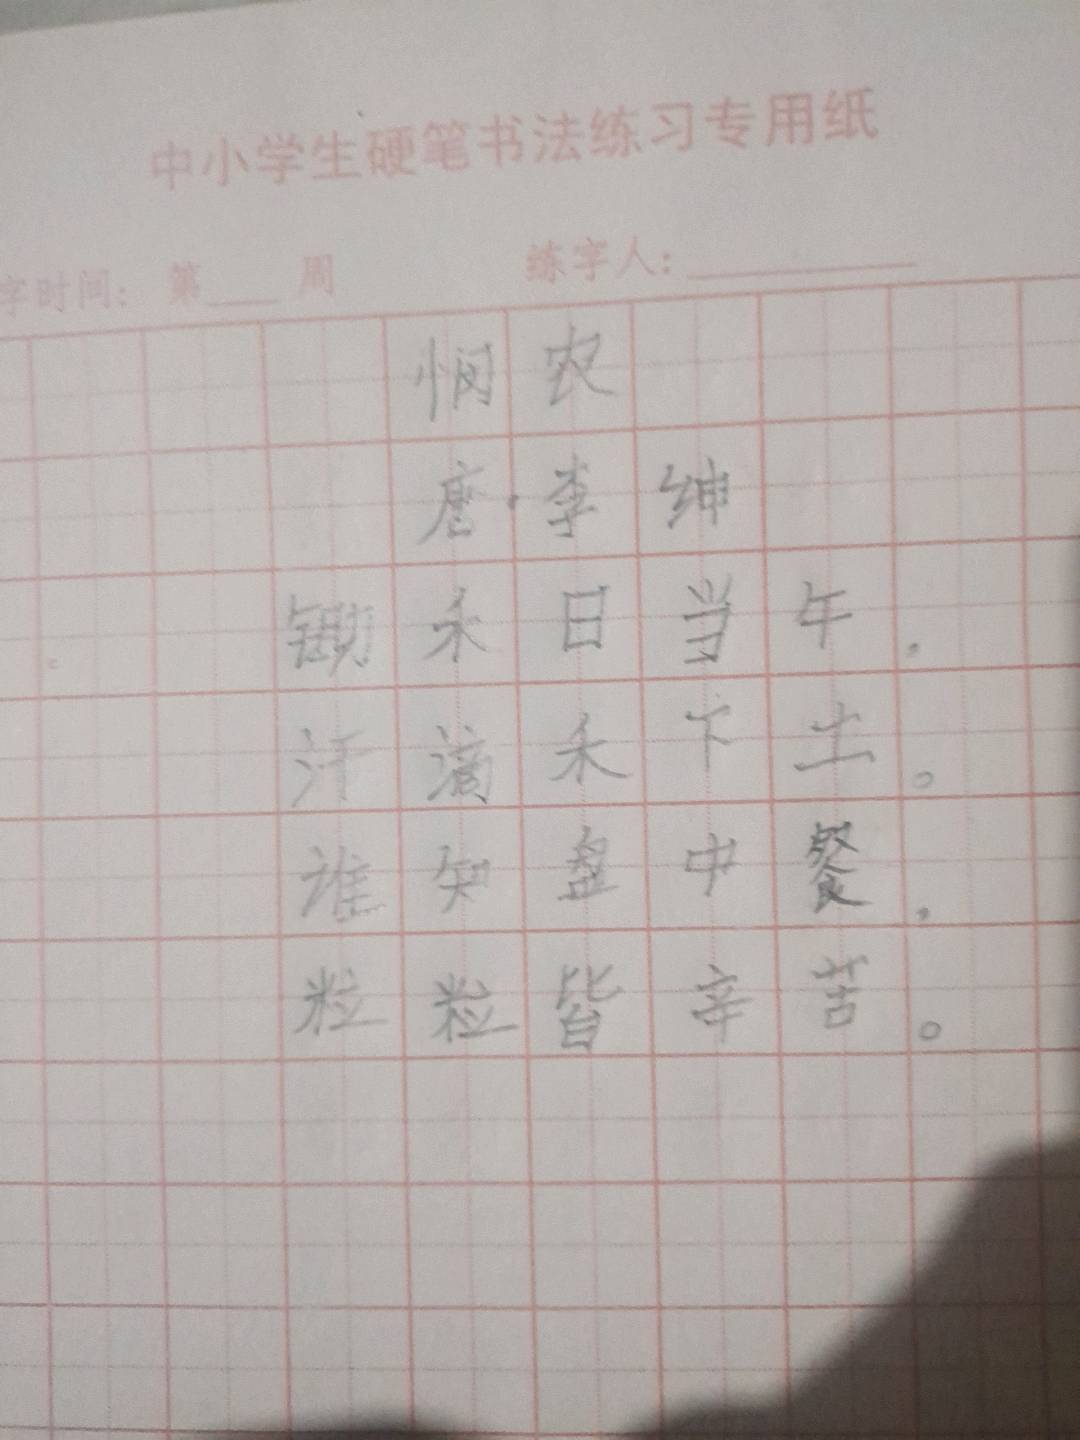 中小学生硬笔书法练习专用纸
字时间: 第____周 练字人:________
悯农
唐·李绅
锄禾日当午,
汗滴禾下土。
谁知盘中餐,
粒粒皆辛苦。